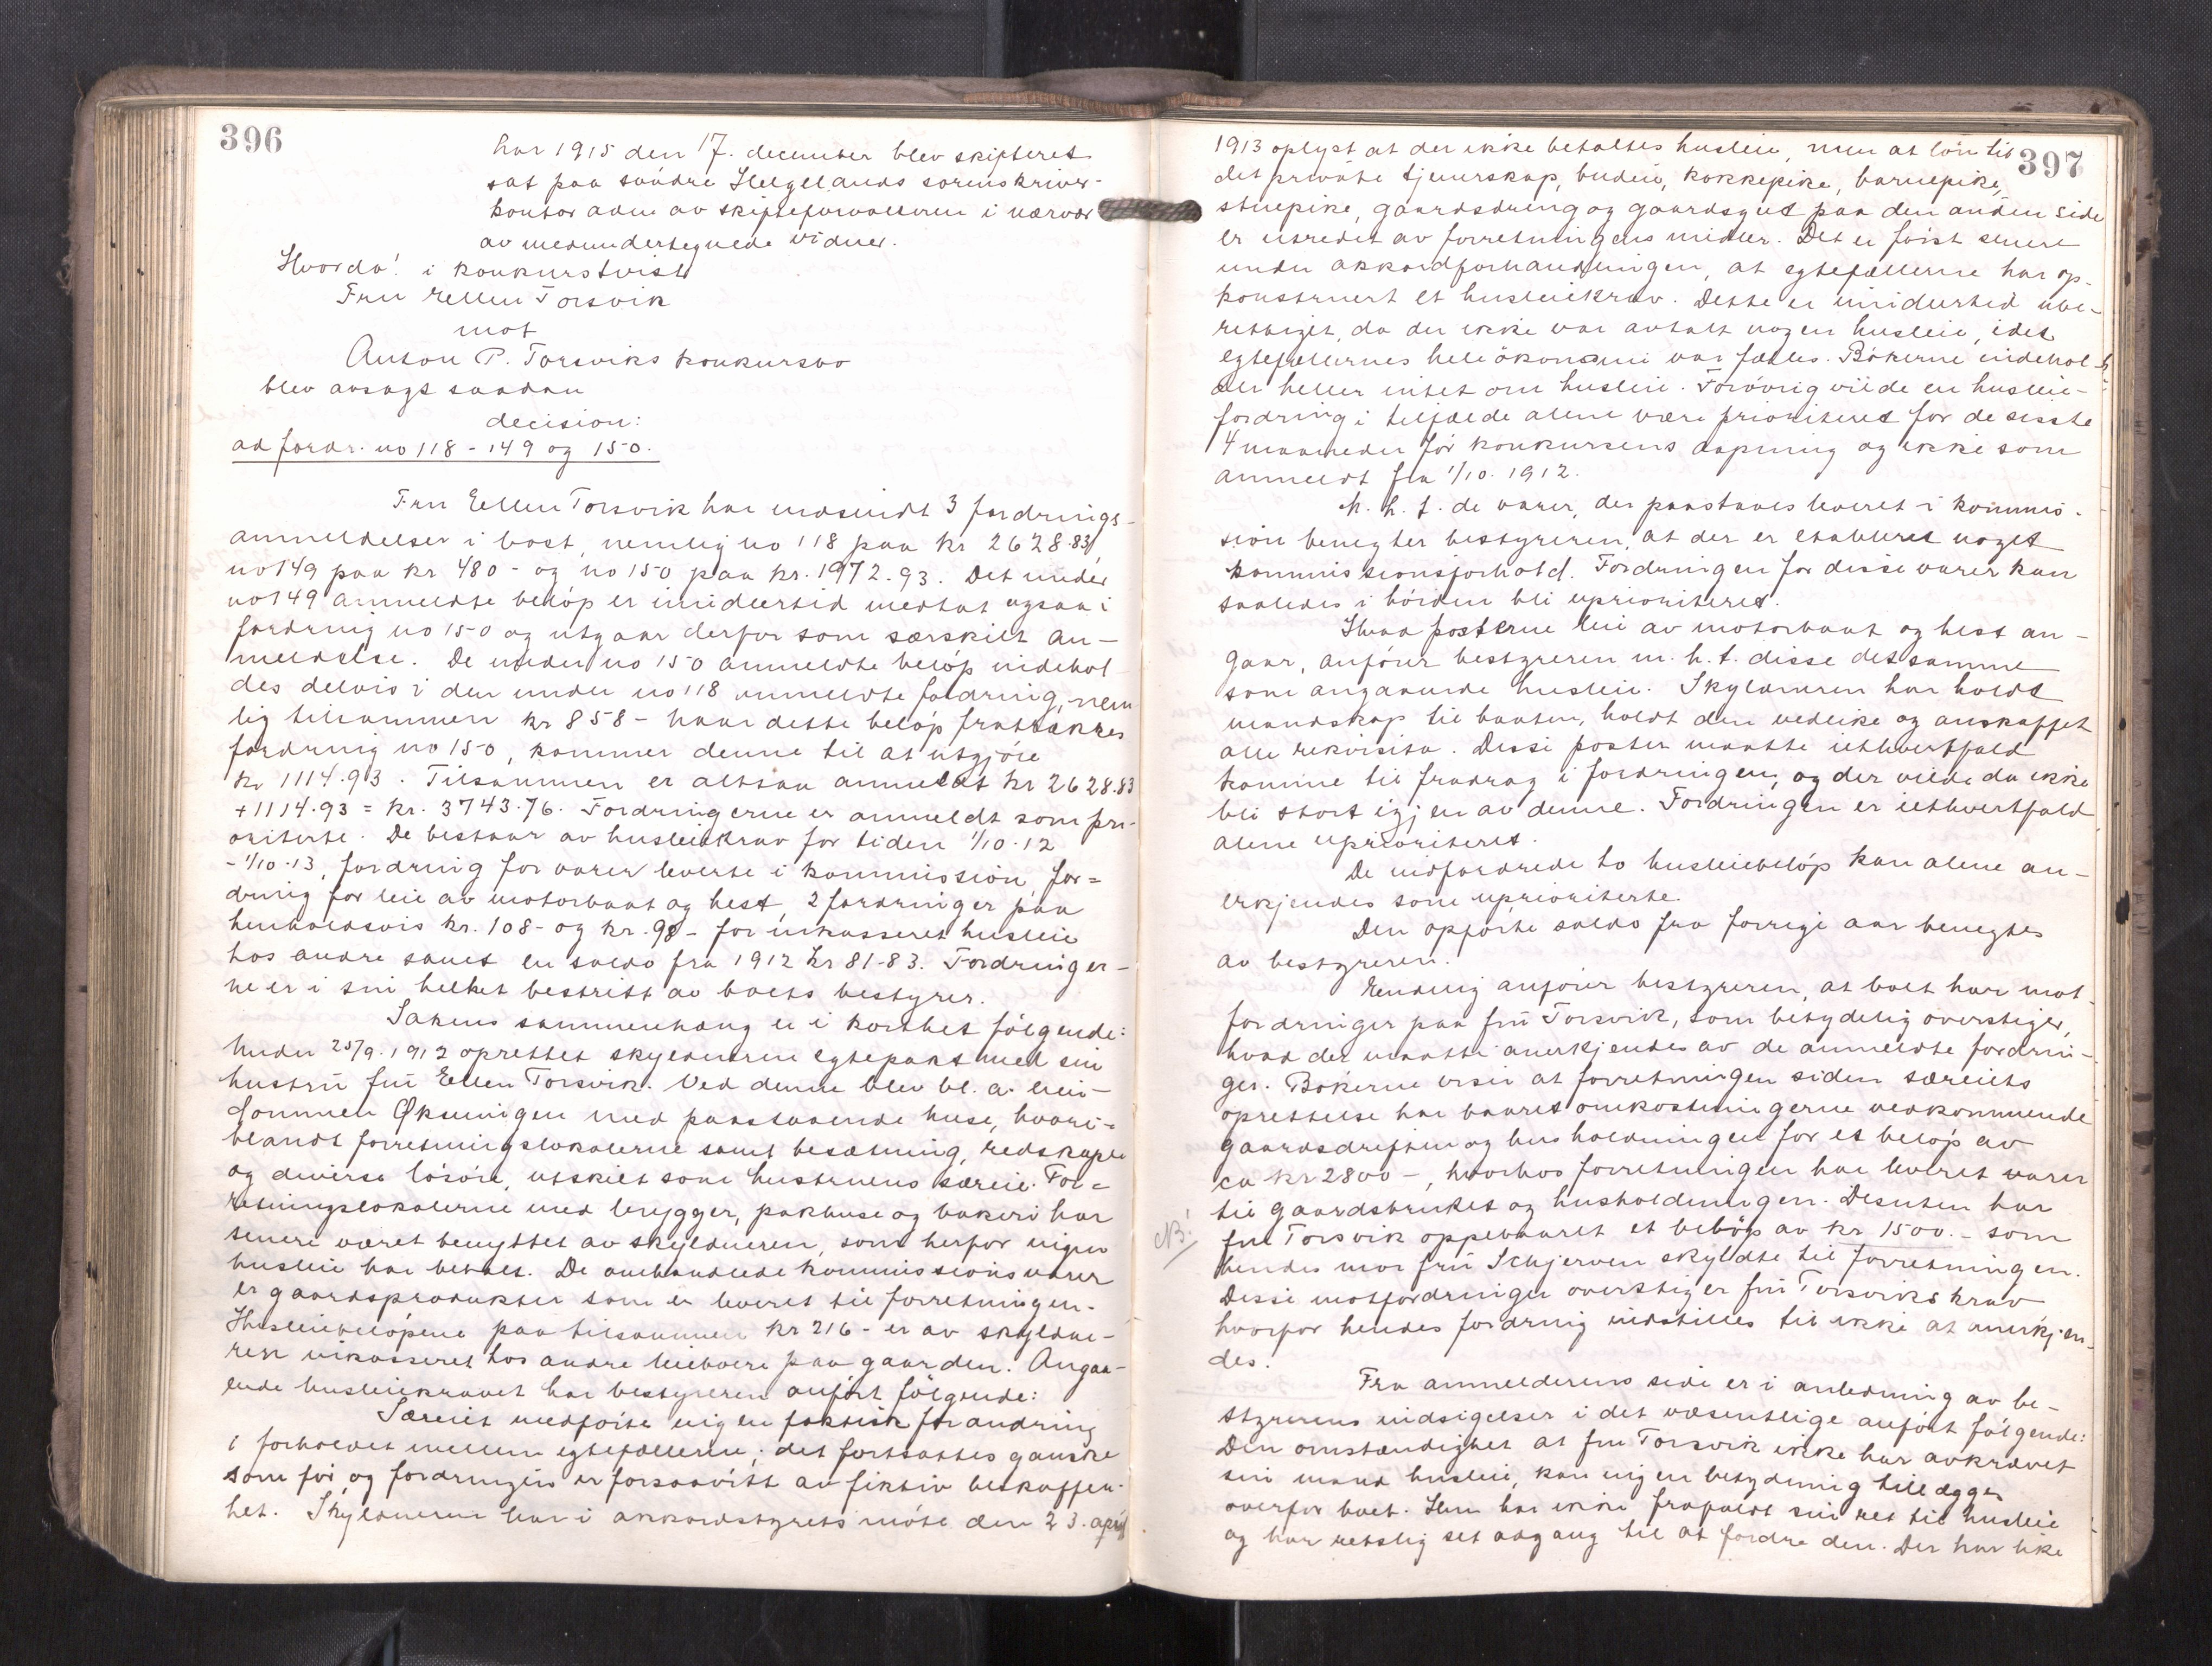 396
Aar 1915 den 17. december blev skifteret
sat paa søndre Helgelands sorenskriver-
kontor adm av skifteforvalteren i nærvær
av medundertegnede vidner.
Hvorda! i konkurstvist
Fru Ellen Torsvik
mot
Anton P. Torsviks konkursbo
blev avsagt saadan
decision:
ad fordr. no 118 - 149 og 150.
Fru Ellen Torsvik har indsendt 3 fordrings-
anmeldelser i boet, nemlig no 118 paa kr 2628.83,
no 149 paa kr 480 - og no 150 paa kr. 1972.93. Det under
no 149 anmeldte beløp er imidlertid medtat ogsaa i
fordring no 150 og utgaar derfor som særskilt an-
meldelse. De under no 150 anmeldte beløp indehol-
des delvis i den under no 118 anmeldte fordring, nem
lig tilsammen kr 858 - naar dette beløp fratrækkes
fordring no 150, kommer denne til at utgjøre
kr 1114.93. Tilsammen er altsaa anmeldt kr 2628.83
+ 1114.93 = kr. 3743.76. Fordringerne er anmeldt som pri-
oriterte. De bestaar av husleiekrav for tiden 1/10.12
- 1/10.13, fordring for varer leverte i kommission, for=
dring for leie av motorbaat og hest, 2 fordringer paa
henholdsvis kr. 108- og kr. 98- for inkasseret husleie
hos andre samt en saldo fra 1912 kr 81.83. Fordringer-
ne er i sin helhet bestridt av boets bestyrer.
Sakens sammenhæng er i korthet følgende:
Under 25/9.1912 oprettet skyldneren egtepakt med sin
hustru fru Ellen Torsvik. Ved denne blev bl.a. eien-
dommen Øksningen med paastaaende huse, hvori=
blandt forretningslokalerne samt besætning, redskaper
og diverse løsøre, utskilt som hustruens særeie. For=
retningslokalerne med brygger, pakhuse og bakeri har
senere været benyttet av skyldneren, som herfor ingen
husleie har betalt. De omhandlede kommissionsvarer
er gaardsprodukter som er leveret til forretningen.
Husleiebeløpene paa tilsammen kr 216 - er av skyldne-
ren inkasseret hos andre leieboere paa gaarden. Angaa-
ende husleiekravet har bestyreren anført følgende:
Særeiet medførte ingen faktisk forandring
i forholdet mellem egtefællerne; det fortsattes ganske
som før, og fordringen er forsaavidt av fiktiv beskaffen-
het. Skyldneren har i akkordstyrets møte den 23. april
397
1913 oplyst at der ikke betaltes husleie, men at løn til
det private tjenerskap, budeie, kokkepike, barnepike,
stuepike, gaardsdreng og gaardsgut paa den anden side
er utredet av forretningens midler. Det er først senere
under akkordforhandlingen, at egtefællerne har op-
konstruert et husleiekrav. Dette er imidlertid ube-
rettiget, da der ikke var avtalt nogen husleie, idet
egtefællernes hele økonomi var fælles. Bøkerne indehol-
der heller intet om husleie. Forøvrig vilde en husleie-
fordring i tilfælde alene være prioriteret for de sisste
4 maaneder før konkursens aapning og ikke som
anmeldt fra 1/10.1912.
M. h. t. de varer, der paastaaes leveret i kommis-
sion benegter bestyreren, at der er etableret noget
kommissionsforhold. Fordringen for disse varer kan
saaledes i høiden bli uprioriteret.
Hvad posterne leie av motorbaat og hest an-
gaar, anfører bestyreren m. h. t. disse det samme
som angaaende husleie. Skyldneren har holdt
mandskap til baaten, holdt den vedlike og anskaffet
alle rekvisita. Disse poster maatte iethvertfald
komme til fradrag i fordringen, og der vilde da ikke
bli stort igjen av denne. Fordringen er iethvertfald
alene uprioriteret.
De indfordrede to husleiebeløp kan alene an-
erkjendes som uprioriterte.
Den opførte saldo fra forrige aar benegtes
av bestyreren.
Endelig anfører bestyreren, at boet har mot-
fordringer paa fru Torsvik, som betydelig overstiger,
hvad der maatte anerkjendes av de anmeldte fordrin-
ger. Bøkerne viser at forretningen siden særeiets
oprettelse har baaret omkostningerne vedkommende
gaardsdriften og husholdningen for et beløp av
ca kr 2800 -, hvorhos forretningen har leveret varer
til gaardsbruket og husholdningen. Desuten har
NB! fru Torsvik oppebaaret et beløp av kr 1500.- som
hendes mor fru Schjerven skyldte til forretningen.
Disse motfordringer overstiger fru Torsviks krav
hvorfor hendes fordring indstilles til ikke at anerkjen-
des.
Fra anmelderens side er i anledning av be-
styrerens indsigelser i det væsentlige anført følgende:
Den omstændighet at fru Torsvik ikke har avkrævet
sin mand husleie, kan ingen betydning tillægges
overfor boet. Hun har ikke frafaldt sin ret til husleie
og har retslig set adgang til at fordre den. Der har ikke